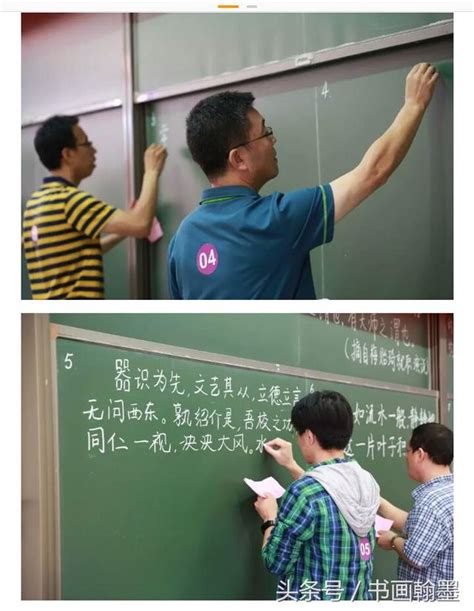 4.
04
有大师之谓也。
(摘自梅贻琦就职演说)
5
器识为先，文艺其从，立德立言
无问西东。孰绍介是，吾校之功
同仁一视，泱泱大风。水
如流水一般，静静
这一片叶子和
05
头条号 / 书画翰墨